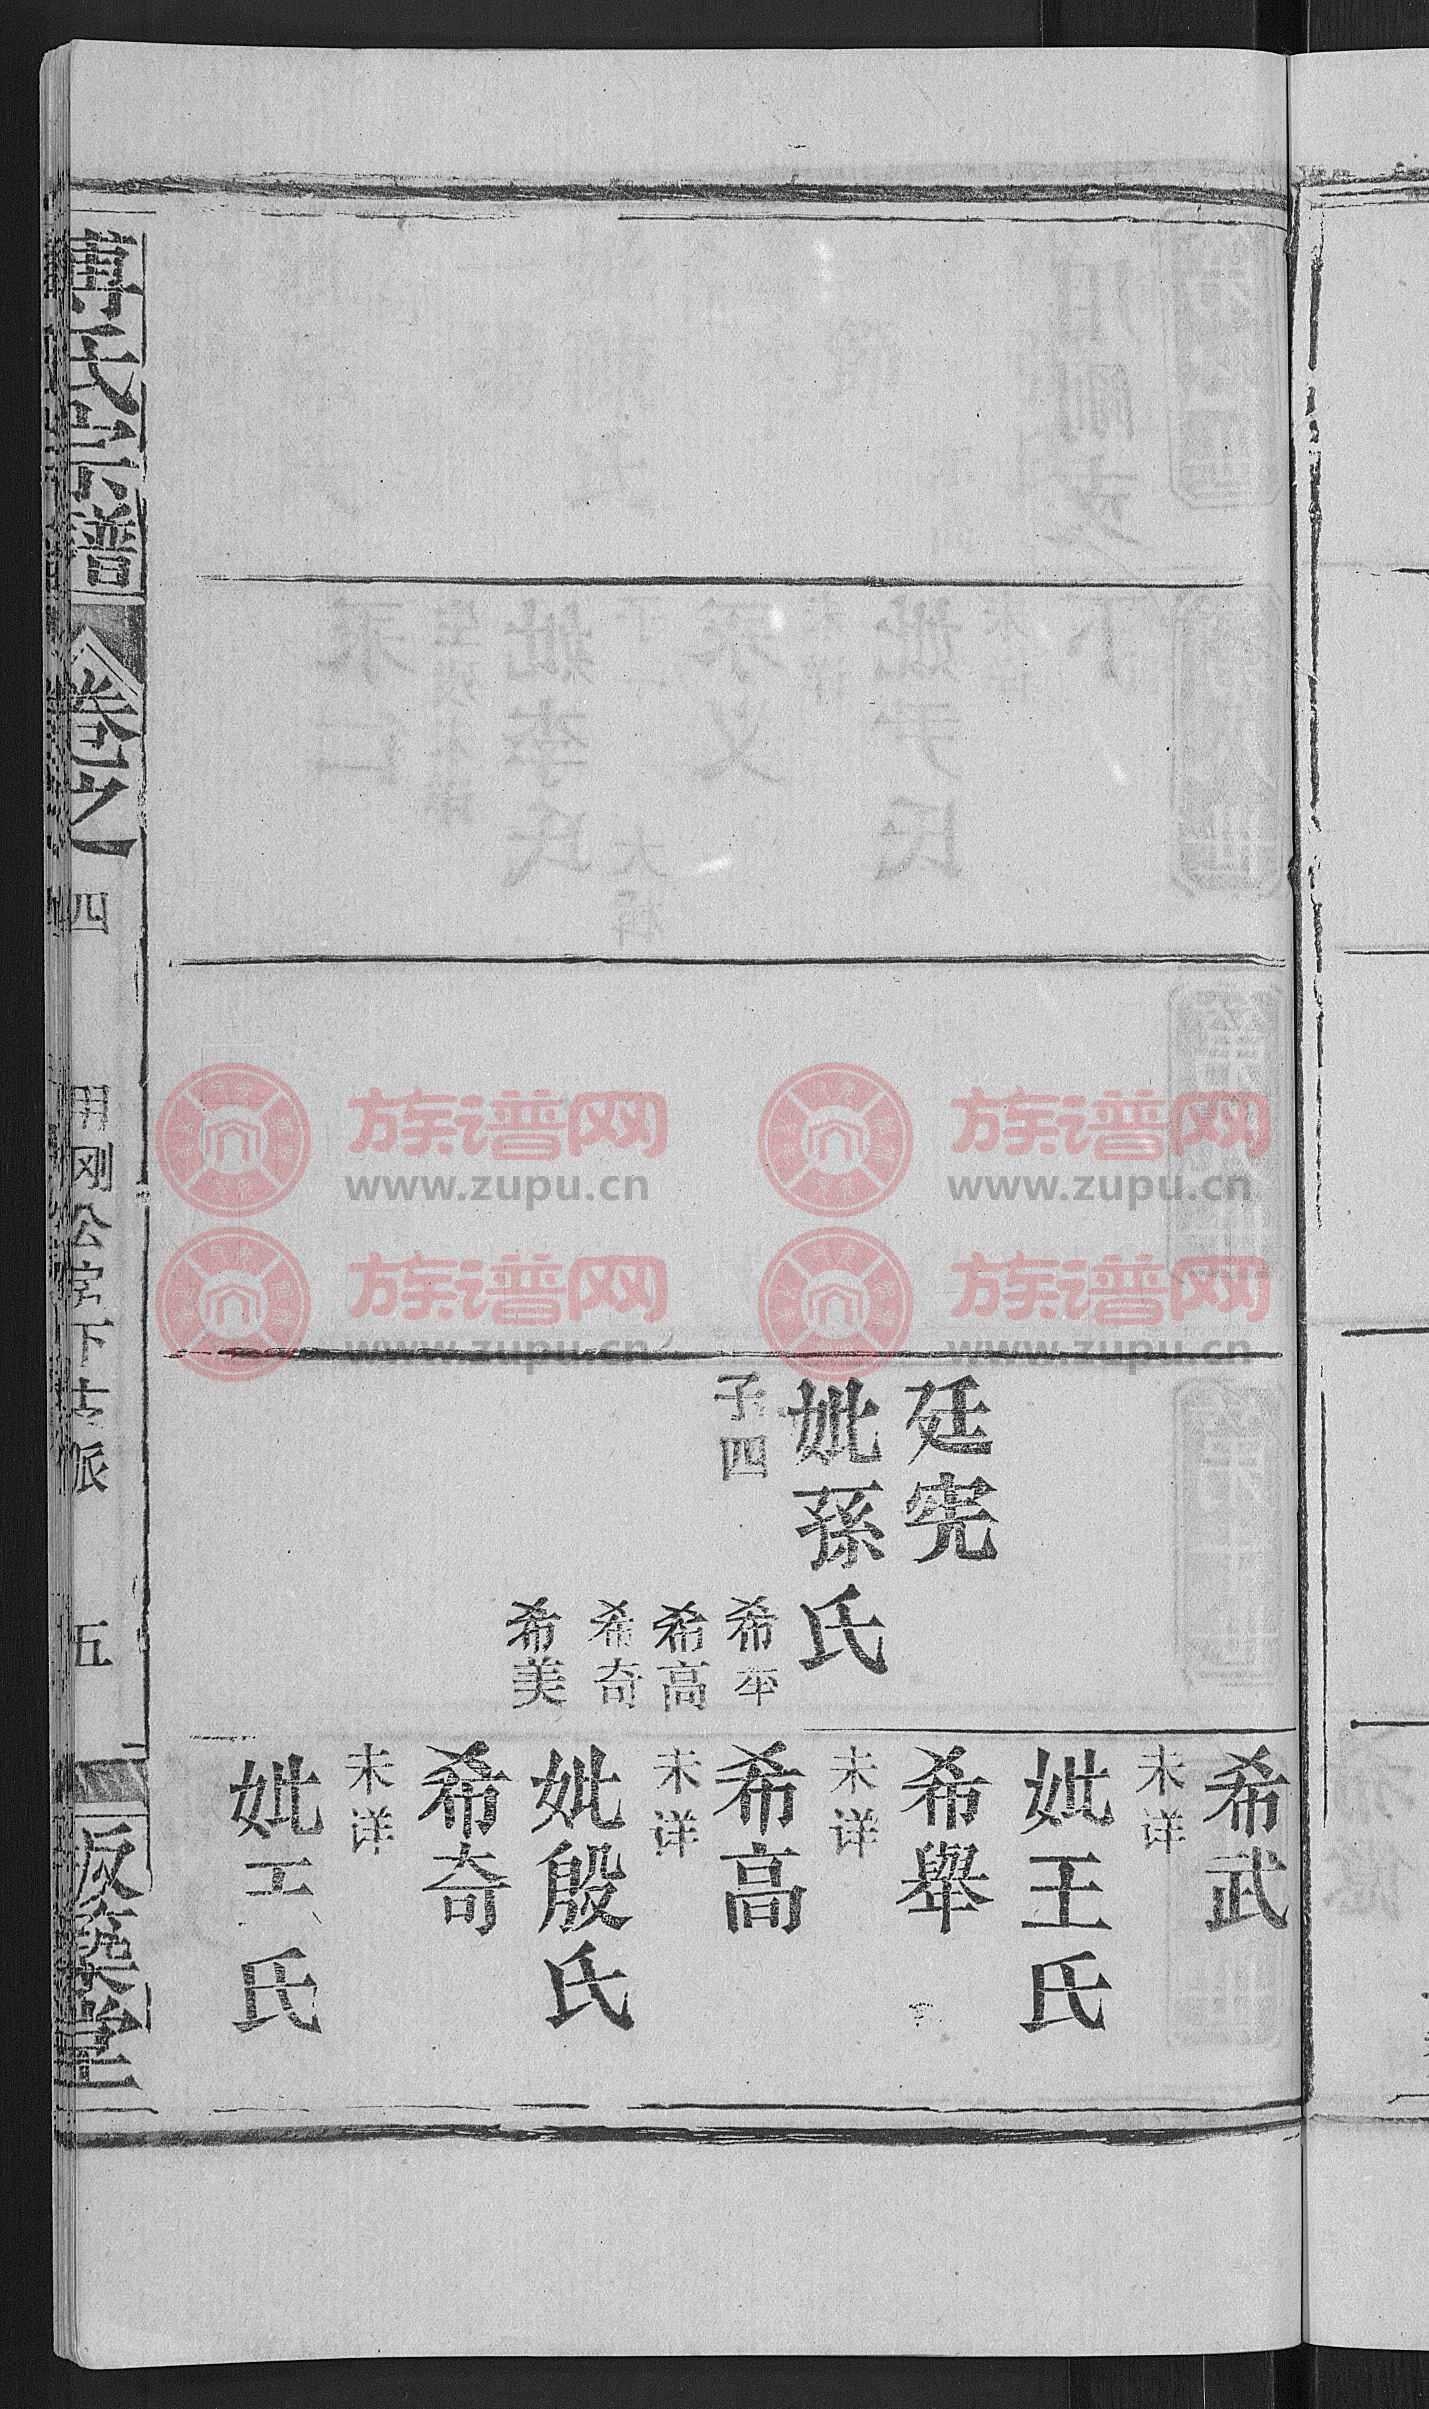 廷宪
妣孫氏
子四
希举
希高
希奇
希美
希武
未详
妣王氏
希舉
未详
希高
未详
妣殷氏
希奇
未详
妣王氏
傅氏宗譜
卷之一
四
用刚公字下支派
五
版築堂
族谱网
www.zupu.cn
族谱网
www.zupu.cn
族谱网
www.zupu.cn
族谱网
www.zupu.cn